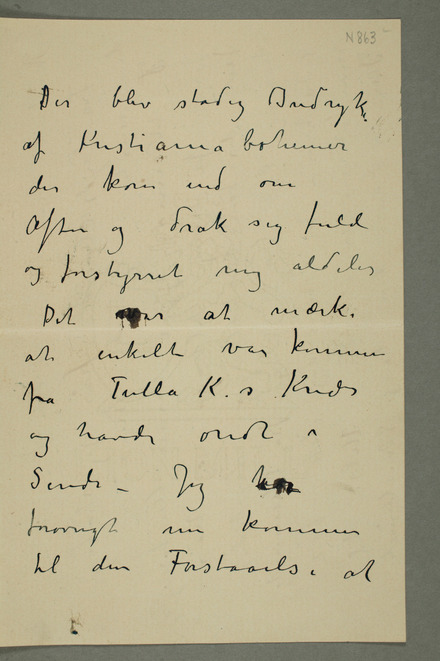 N 863
Der blev stadig Indryk
af Kristianiabohemer
der kom ind om
Aften og drak sig fuld
og forstyrret mig aldeles
Det var at mærke
at enkelt var kommen
fra Tulla K.s Kreds
og havde ondt i
Sinde – Jeg har
forøvrigt nu kommen
til den Forstaaelse at